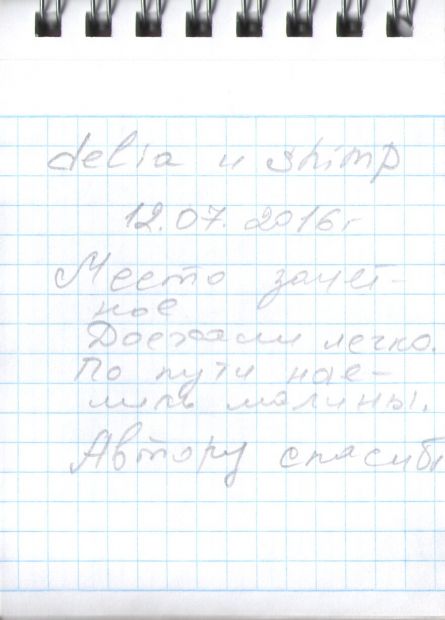 delia и shimp
12.07.2016г
Место зачет-
ное
Доехали легко.
По пути нае-
лись малины.
Автору спасиб